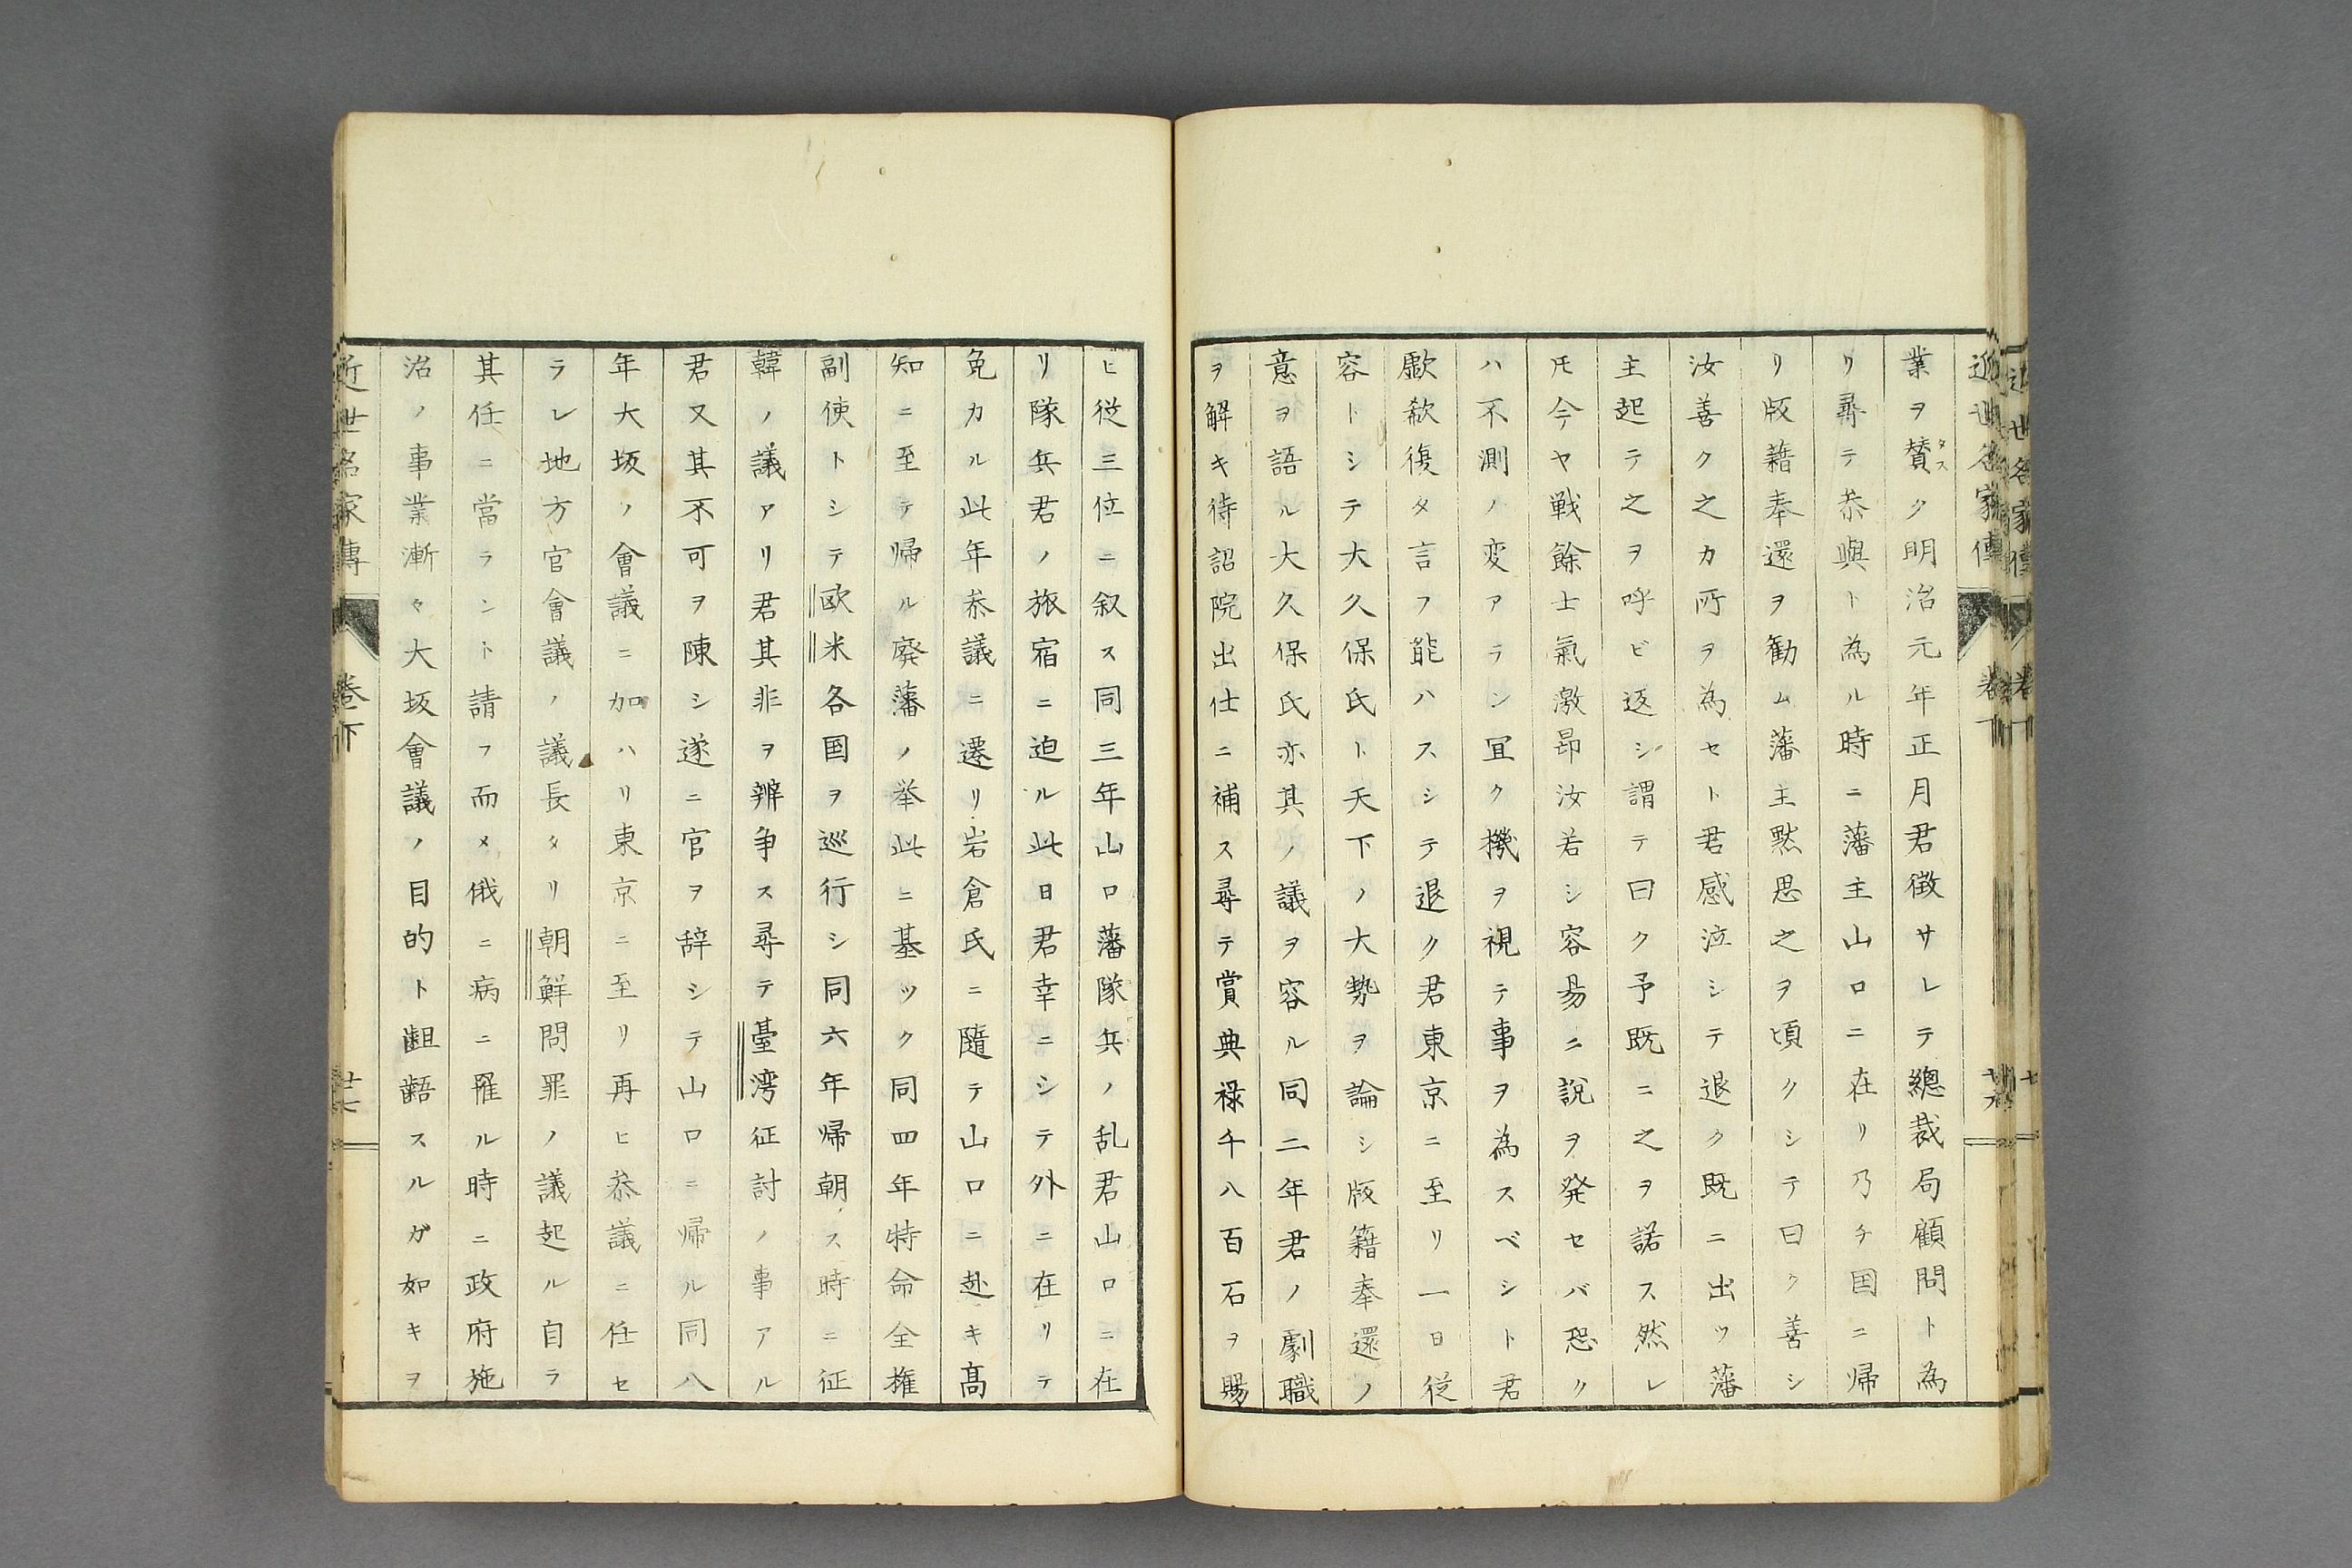 業ヲ賛タスク明治元年正月君徴サレテ總裁局顧問ト為
リ尋テ叅與ト為ル時ニ藩主山口ニ在リ乃チ国ニ帰
リ版藉奉還ヲ勧ム藩主黙思之ヲ頃クシテ曰ク善シ
汝善ク之カ所ヲ為セト君感泣シテ退ク既ニ出ツ藩
主起テ之ヲ呼ビ返シ謂テ曰ク予既ニ之ヲ諾ス然レ
𪜈今ヤ戦餘士氣激昂汝若シ容昜ニ説ヲ発セバ恐ク
ハ不測ノ変アラン冝ク機ヲ視テ事ヲ為スベシト君
歔欷復タ言フ能ハスシテ退ク君東京ニ至リ一日従
容トシテ大久保氏ト天下ノ大勢ヲ論シ版籍奉還ノ
意ヲ語ル大久保氏亦其ノ議ヲ容ル同二年君ノ劇職
ヲ解キ待詔院出仕ニ補ス尋テ賞典禄千八百石ヲ賜
ヒ従三位ニ叙ス同三年山口藩隊兵ノ乱君山口ニ在
リ隊兵君ノ旅宿ニ迫ル此日君幸ニシテ外ニ在リテ
免カル此年叅議ニ遷リ岩倉氏ニ隨テ山口ニ赴キ髙
知ニ至テ帰ル廃藩ノ挙此ニ基ツク同四年特命全権
副使トシテ欧米各国ヲ巡行シ同六年帰朝ス時ニ征
韓ノ議アリ君其非ヲ辨争ス尋テ臺湾征討ノ事アル
君又其不可ヲ陳シ遂ニ官ヲ辞シテ山口ニ帰ル同八
年大坂ノ會議ニ加ハリ東京ニ至リ再ヒ叅議ニ任セ
ラレ地方官會議ノ議長タリ朝鮮問罪ノ議起ル自ラ
其任ニ當ラント請フ而メ俄ニ病ニ罹ル時ニ政府施
治ノ事業漸々大坂會議ノ目的ト齟齬スルガ如キヲ
近世名家傳 卷下 廿七